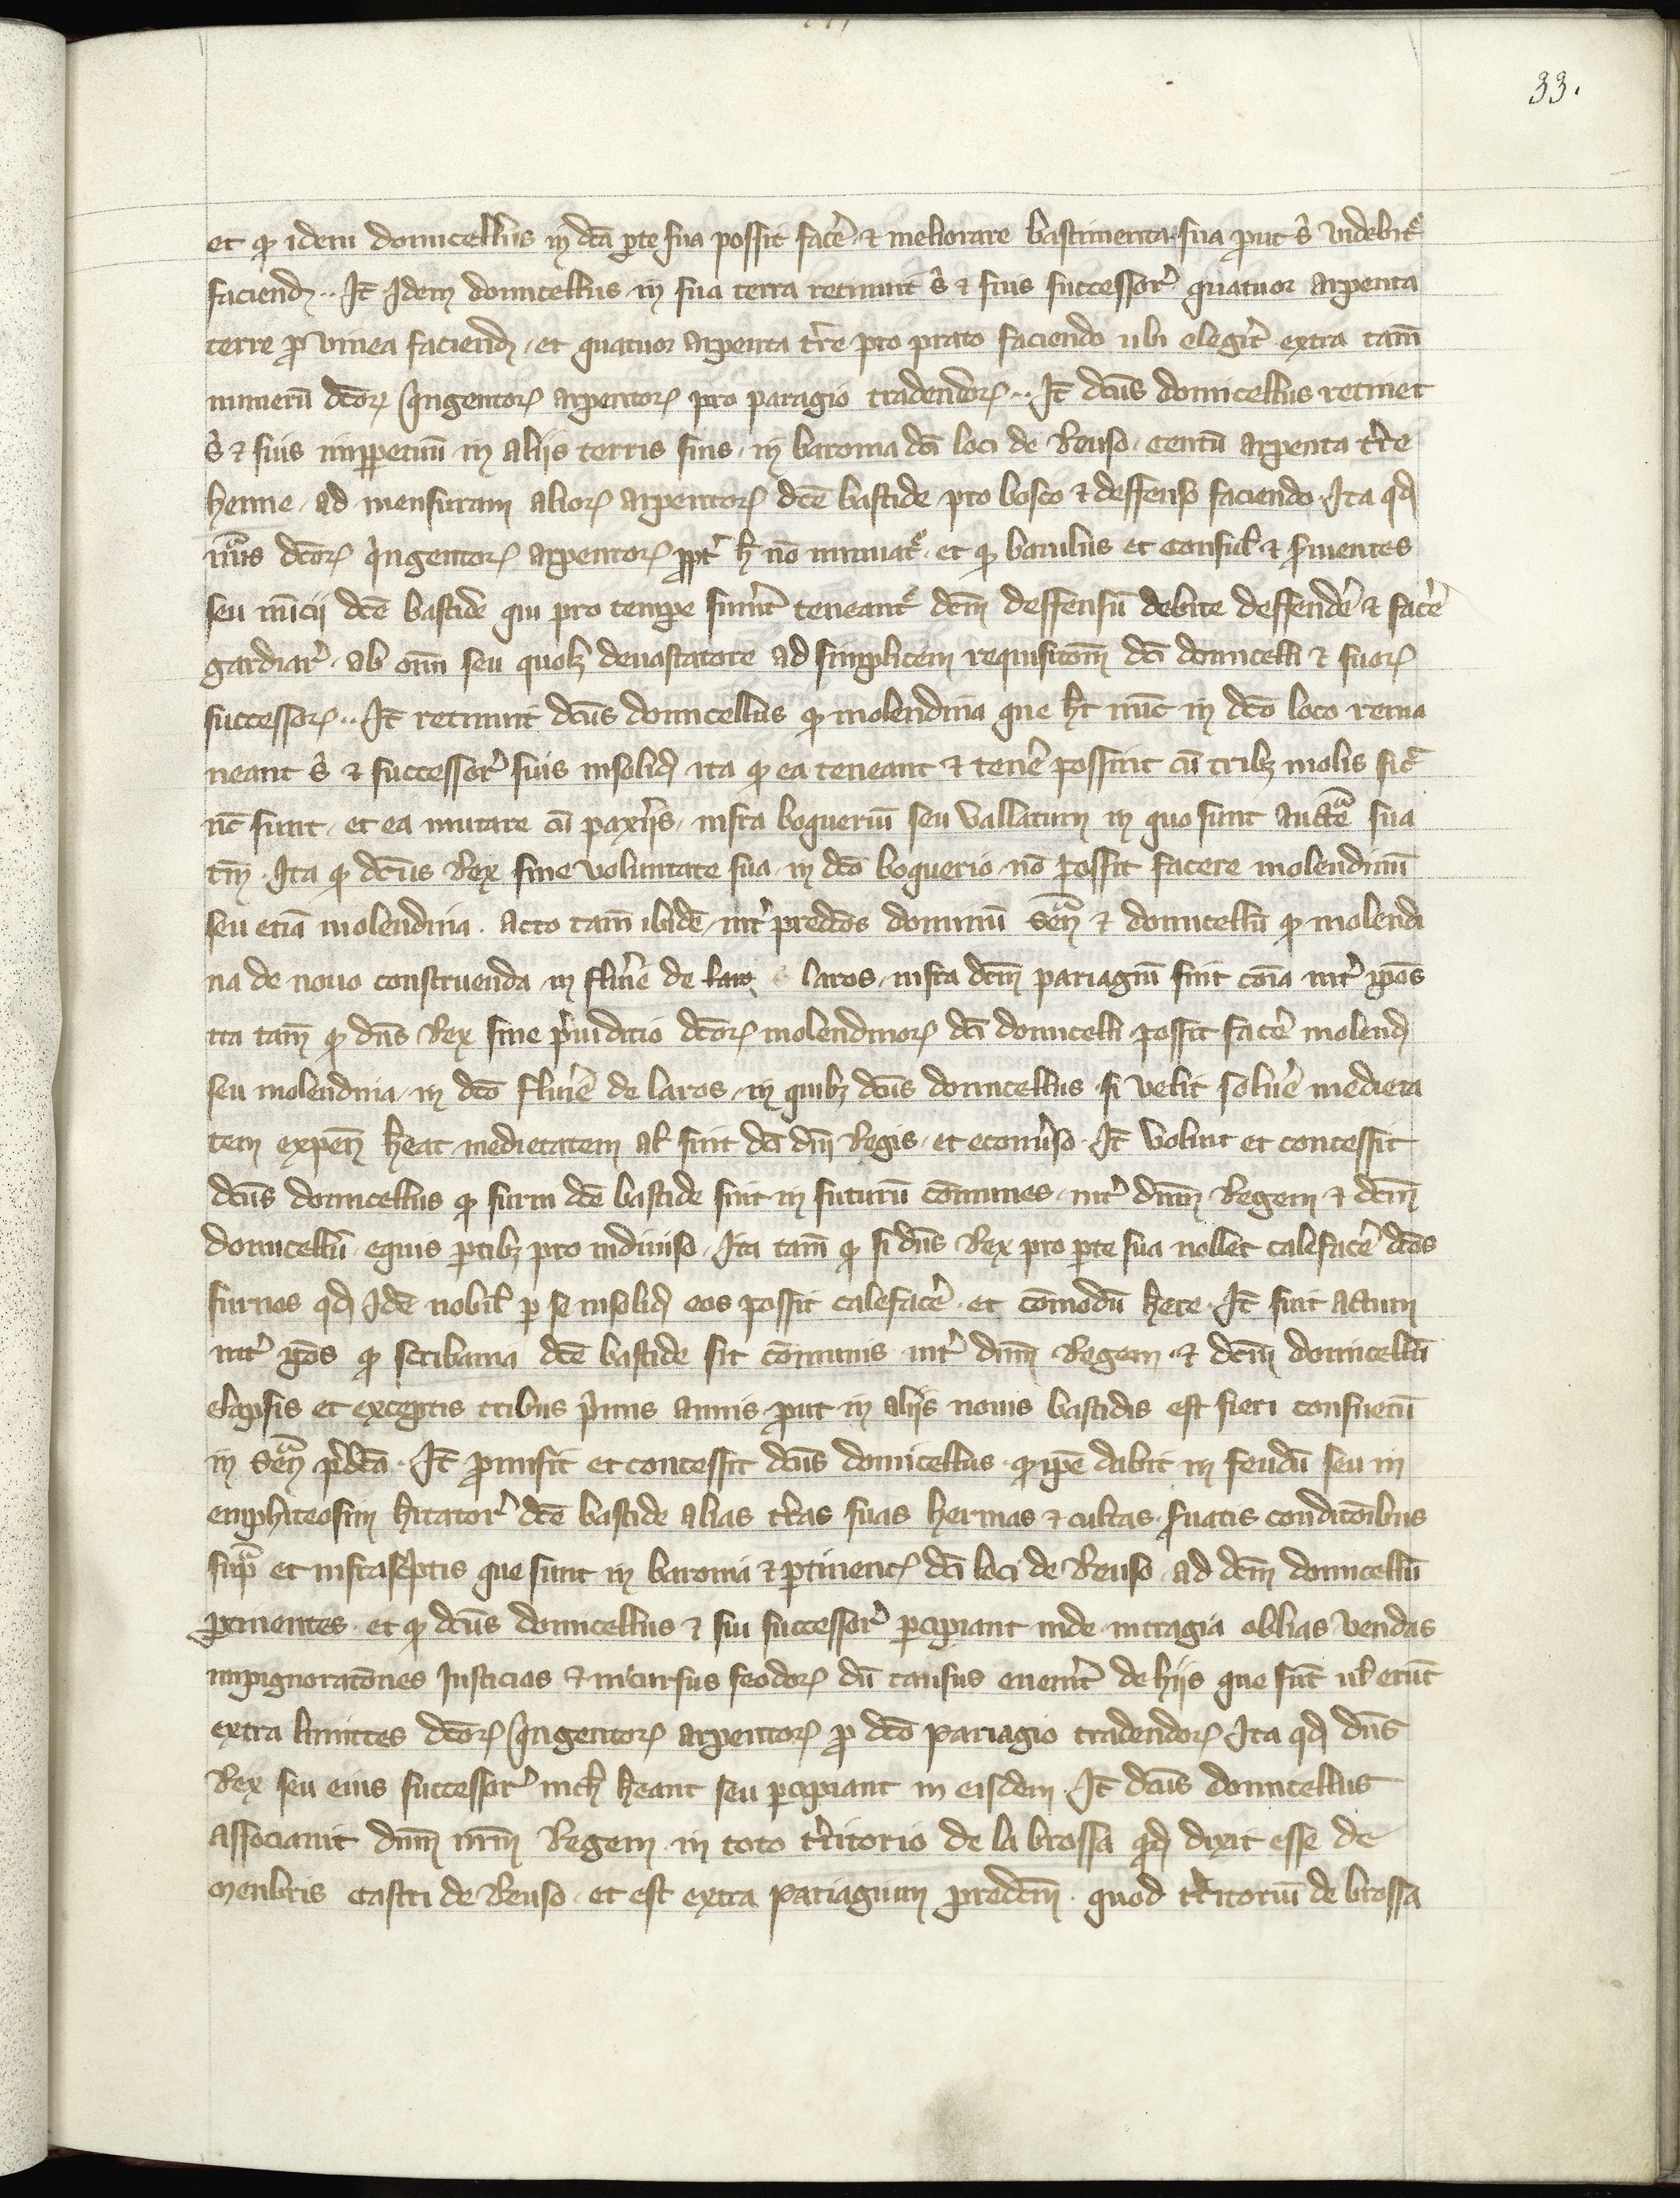 33.
et ꝙ idem domicellus in dc̄a ꝑte sua possit facẽ ⁊ meliorare bastimenta sua ꝓut s̃ videbit᷑
faciend̃ .. It̃ Idem domicellus in sua terra retinuit s̃ ⁊ suis successor̃ quatuor arpenta
terre ꝓ vinea faciend̃, et quatuor arpenta tr̃e pro prato faciendo ubi elegĩt extra tam̃
numerũ dc̃oꝝ Qingentoꝝ arpentoꝝ pro paragio tradendoꝝ .. It̃ dc̃us domicellus retinet
s̃ ⁊ suis imꝑpetuũ in aliis terris suis, in baronia dc̃i loci de Reuso, centũ arpenta tr̃e
herme, ad mensuram alioꝝ arpentoꝝ dc̃e bastide, pro bosco ⁊ deffenso faciendo. Ita qd̃
nũus dc̃oꝝ Qingentoꝝ arpentoꝝ ꝓpt̃ h̃ nõ minuat᷑. et ꝙ baiulus et consul̃ ⁊ s̃uientes
seu nũcij dc̃e bastide qui pro tempe fuĩt teneant᷑ dc̃m deffensũ debite deffendẽ ⁊ facẽ
gardiar̃. ab om̃i seu quolꝫ deuastatore ad simplicem requisitõm dc̃i domicelli ⁊ suoꝝ
successoꝝ .. It̃ retinuit dc̃us domicellus ꝙ molendina que h̃t nũc in dc̃o loco rema
neant s̃ ⁊ successor̃ suis insolid̃ ita ꝙ ea teneant ⁊ tenẽ possint cũ tribꝫ molis sic᷑
nc̃ sunt, et ea mutare cũ paxeriis, infra boqueriũ seu vallatum in quo sunt auctẽ sua
tm̃. Ita ꝙ dc̃us Rex sine voluntate sua, in dc̃o boquerio, nõ possit facere molendinũ
seu etiã molendina. acto tam̃ ibidẽ, int̃ predc̃os dominũ Señ ⁊ domicellũ ꝙ molendi
na de nouo construenda in flũie de laros, infra dc̃m pariagiũ sint cõia int̃ ip̃os
ita tam̃ ꝙ dñs Rex sine p̃iudicio dc̃oꝝ molendinoꝝ dc̃i domicelli possit facẽ molend̃
seu molendina, in dc̃o flũie de laros, in quibꝫ dc̃us domicellus si velit soluẽ medieta
tem expeñ h̃eat medietatem al̃ sint dc̃i dñi Regis, et econũso. It̃ voluit et concessit
dc̃us domicellus ꝙ furni dc̃e bastide sint in futurũ cõmunes, int̃ dñm Regem ⁊ dc̃m
domicellũ equis ꝑtibꝫ pro indiuiso, Ita tam̃ ꝙ si dñs Rex pro ꝑte sua nollet calefacẽ dc̃os
furnos qd̃ Idẽ nobil̃ ꝑ se insolid̃ eos possit calefacẽ. et cõmodũ h̃ere. It̃ fuit actum
int̃ ip̃os ꝙ scribania dc̃e bastide sit cõmunis int̃ dñm Regem ⁊ dc̃m domicellũ
elapsis et exceptis tribus p̃mis annis ꝓut in aliis nouis bastidis est fieri consuetũ
in Señ p̃dc̃a. It̃ ꝓmisit et concessit dc̃us domicellus. ꝙ ip̃e dabit in feudũ seu in
emphiteosim h̃itator̃ dc̃e bastide alias tr̃as suas hermas ⁊ cultas, s̃uatis conditõibus
supᷓ et infrasc̃ptis que sunt in baronia ⁊ ꝑtineñt dc̃i loci de Reuso, ad dc̃m domicellũ
ꝑtinentes. et ꝙ dc̃us domicellus ⁊ sui successor̃ ꝑcipiant inde intragia oblias vendas
impignoratõnes Justicias ⁊ incursus feodoꝝ dũ causus euenĩt de hiis que sũt ul̃ erũt
extra limites dc̃oꝝ Qingentoꝝ arpentoꝝ ꝓ dc̃o pariagio tradendoꝝ. Ita qd̃ dñs
Rex seu eius successor̃ nich̃ h̃eant seu ꝑcipiant in eisdem. It̃ dc̃us domicellus
associauit dñm nr̃m Regem in toto tr̃itorio de la brossa qd̃ dixit esse de
menbris castri de Reuso, et est extra pariagium predc̃m. quod tr̃itoriũ de brossa